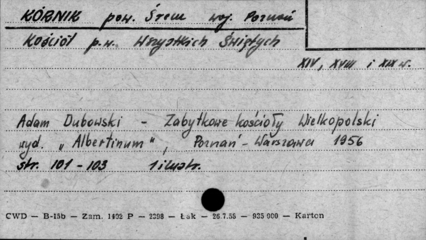 KÓRNIK pow. Śrem woj. Poznań
Kościół p.w. Wszystkich Świętych
XIV, XVIII i XIX w.
Adam Dubowski - Zabytkowe kościoły Wielkopolski
wyd. „Albertinum", Poznań - Warszawa 1956
str. 101 - 103 1 ilustr.
CWD — B-15b — Zam. 1492 P — 2398 — Łak — 26.7.55 — 935 000 — Karton